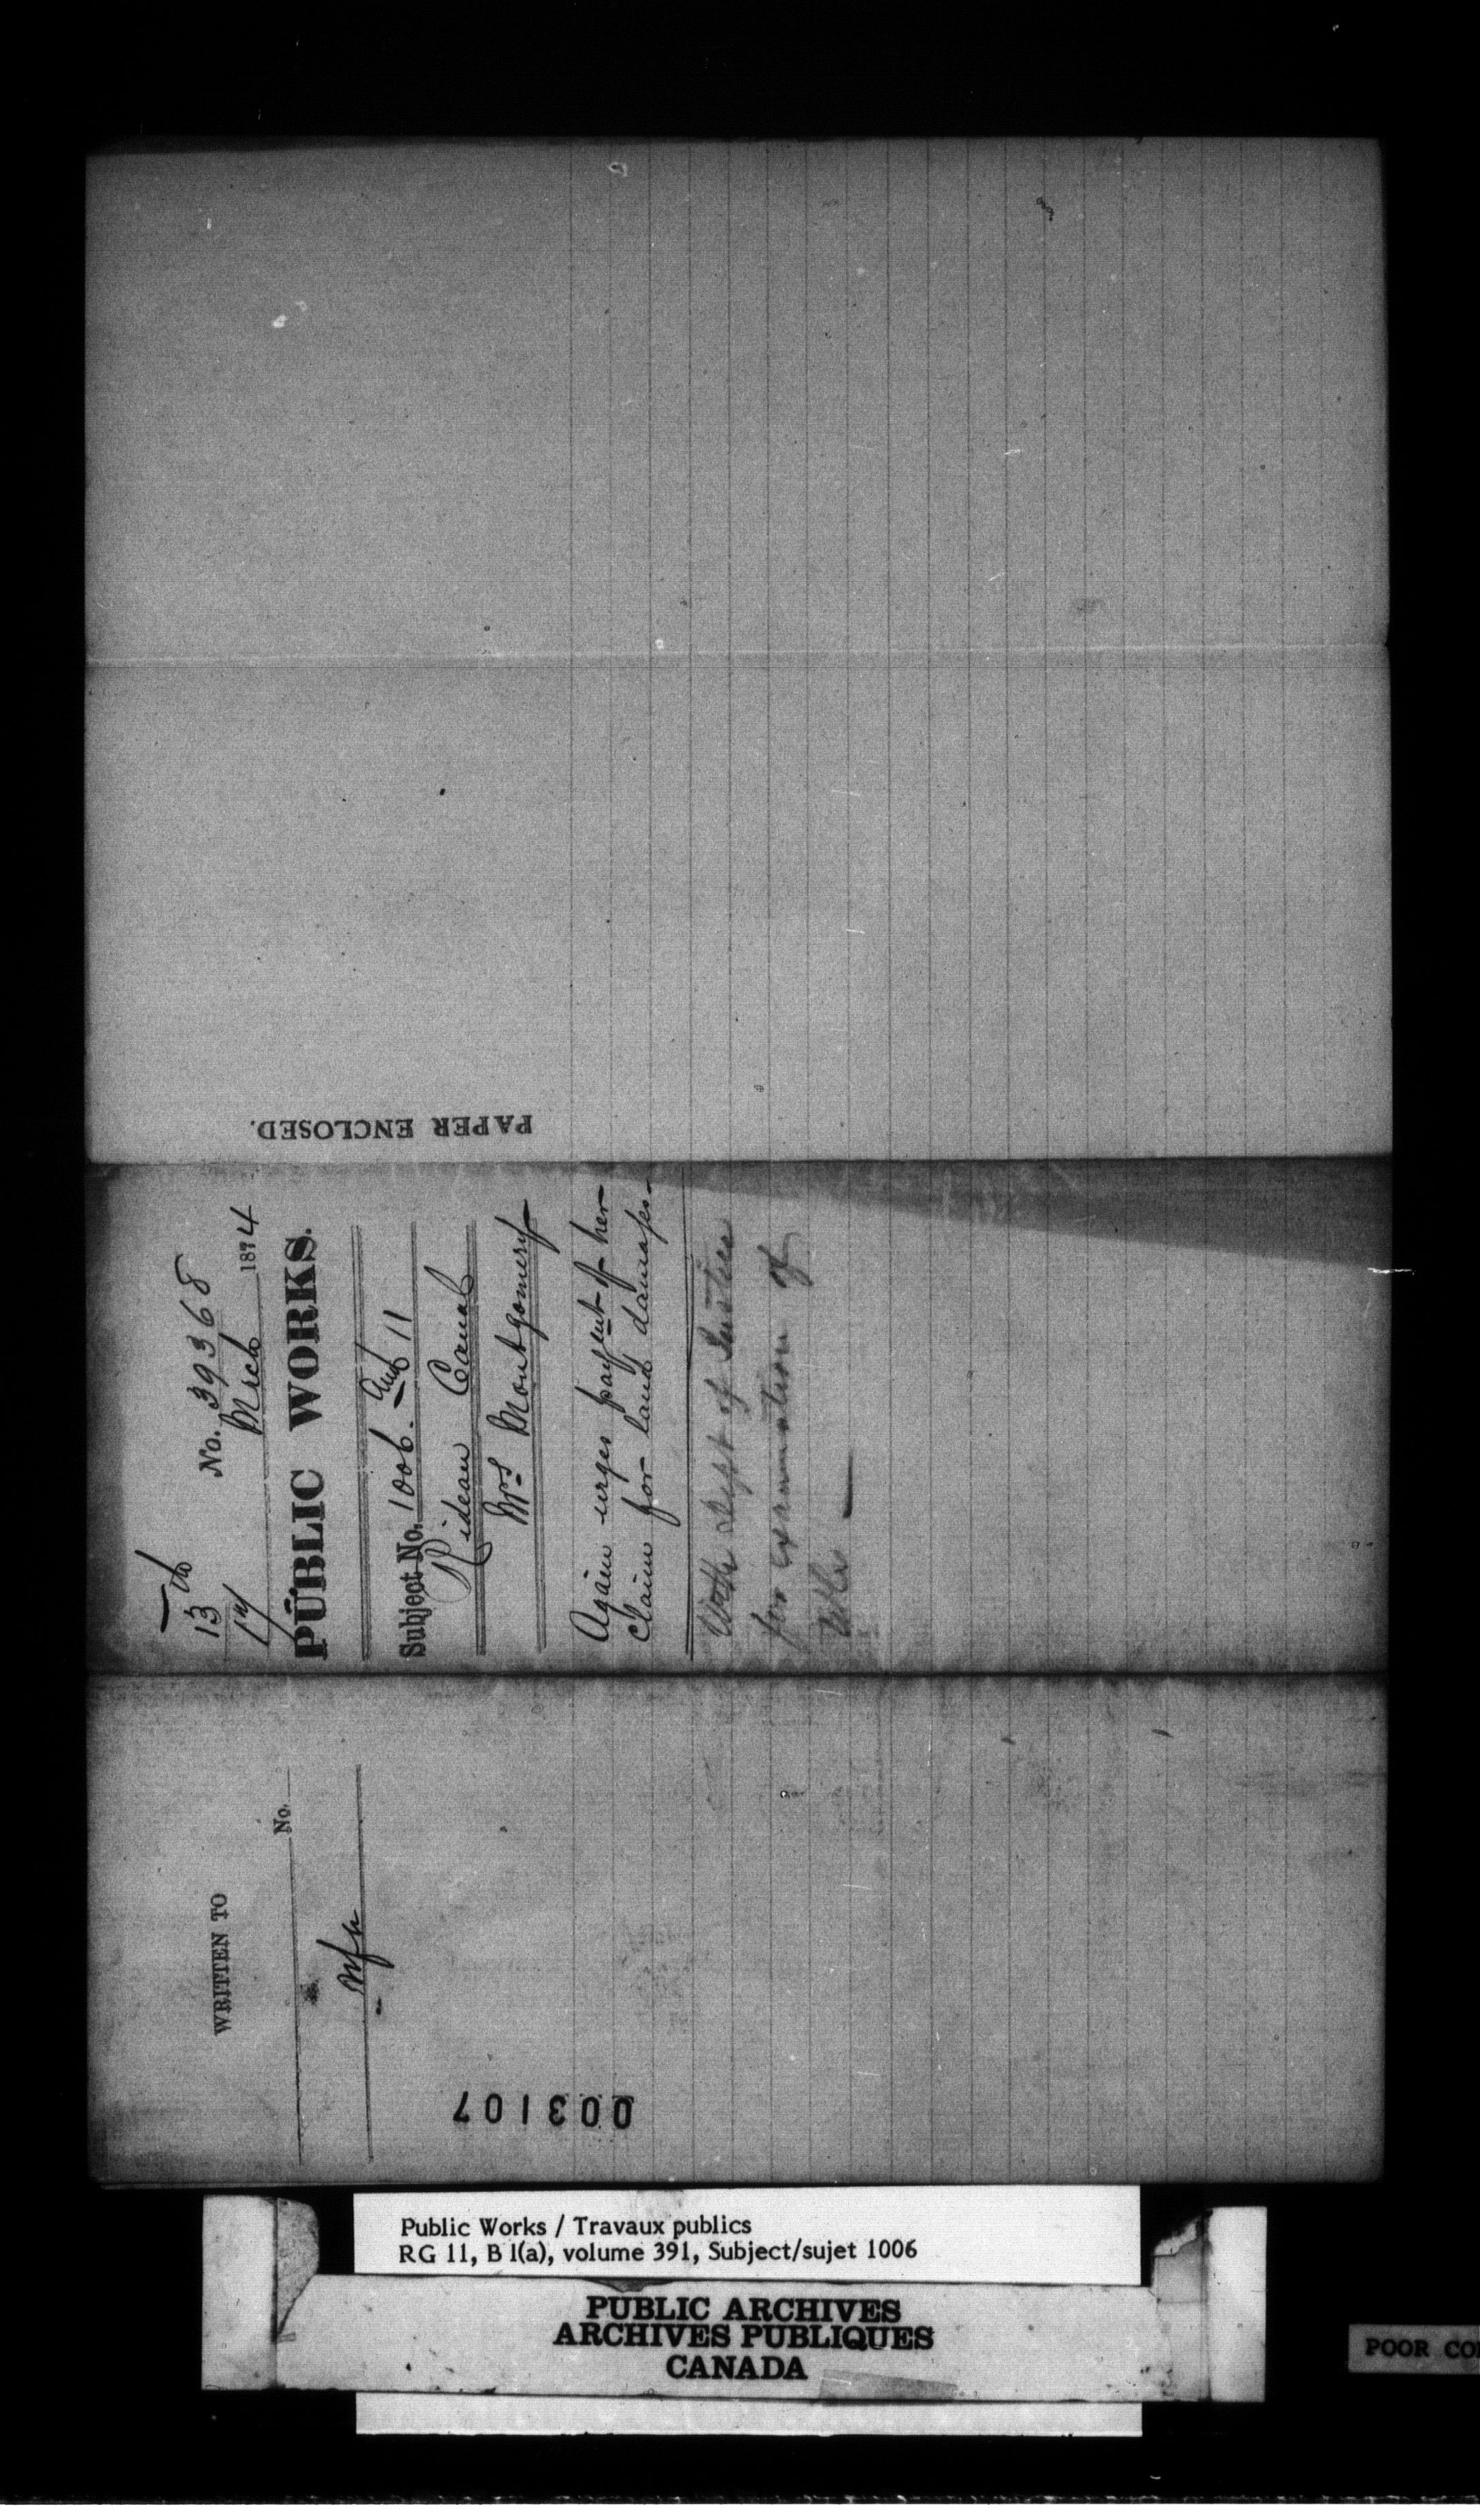 PAPER ENCLOSED.
13th
17
No. 39368
March 1874
PUBLIC WORKS.
Subject No. 1006. And 11
Rideau Canal
Mrs Montgomery
Again urges payment of her
claim for land damages
With Dept of Justice
for examination of
title
WRITTEN TO
No.
003107
Public Works / Travaux publics
RG 11, B 1(a), volume 391, Subject/sujet 1006
PUBLIC ARCHIVES
ARCHIVES PUBLIQUES
CANADA
POOR